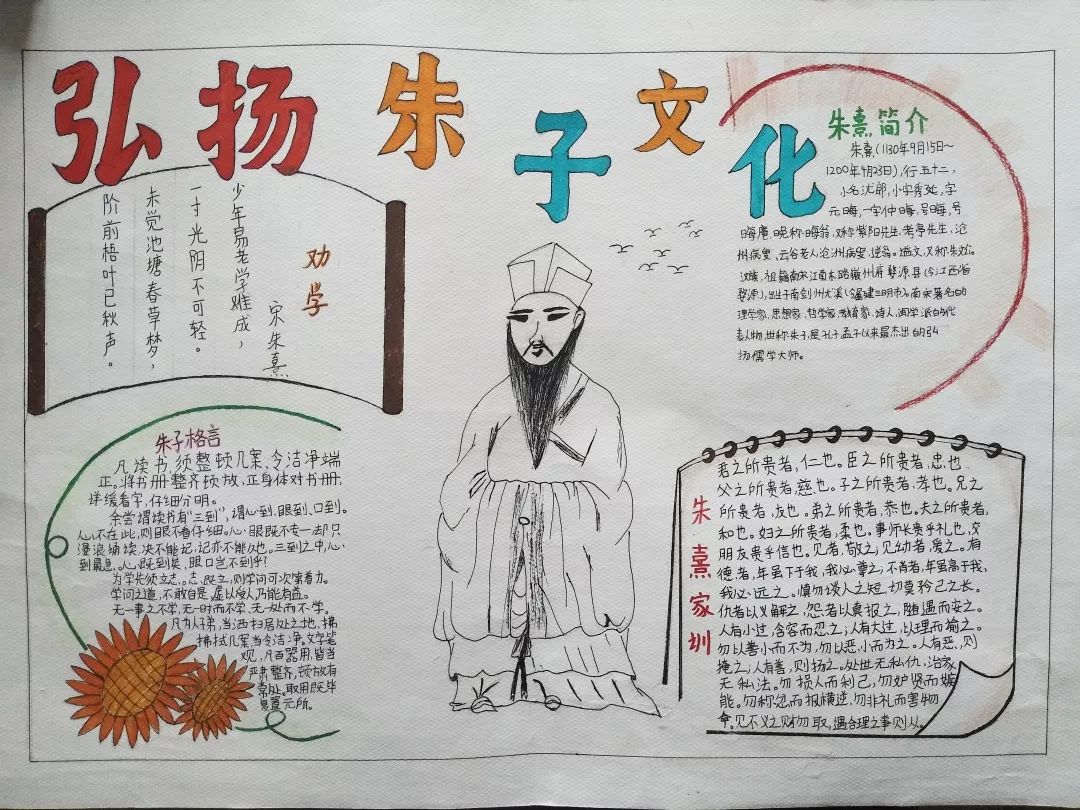 弘扬朱子文化
劝学
宋朱熹
少年易老学难成，
一寸光阴不可轻。
未觉池塘春草梦，
阶前梧叶已秋声。
朱熹简介
朱熹（1130年9月15日～
1200年4月23日），行五十二，
小名沋郎，小字季延，字
元晦，一字仲晦，号晦
晦庵，晚称晦翁，紫阳先生、考亭先生、沧
州病叟、云谷老人、沧洲病叟、逆翁。谥文，又称朱文公。
汉族，祖籍南宋江南东路徽州府婺源县（今江西省
婺源），出生于南剑州尤溪（今福建三明市）。南宋著名的
理学家、思想家、哲学家、教育家、诗人、闽学派的代
表人物，世称朱子，是孔子孟子以来最杰出的弘
扬儒学大师。
朱子格言
凡读书，须整顿几案，令洁净端
正。将书册整齐顿放，正身体对书册，
详缓看字，仔细分明。
余尝谓读书有“三到”，谓心到、眼到、口到。
心不在此，则眼不看仔细。心眼既不专一，却只
漫浪诵读，决不能记，记亦不能久也。三到之中，心
到最急。心既到矣，眼口岂不到乎？
为学长须立志。志既立，则学问可次第着力。
学问之道，不敢自是，虚以受人乃能有益。
无一事之不学，无一时而不学，无一处而不学。
凡为人子弟，当洒扫居处之地，拂
拂拭几案，当令洁净。文字笔
观，凡百器用，皆当
严肃整齐，顿放有
常处。取用既毕
复置元所。
朱熹家圳
君之所贵者，仁也。臣之所贵者，忠也
父之所贵者，慈也。子之所贵者，孝也。兄之
所贵者，友也。弟之所贵者，恭也。夫之所贵者，
和也。妇之所贵者，柔也。事师长贵乎礼也，交
朋友贵乎信也。见老者，敬之；见幼者，爱之。有
德者，年虽下于我，我必尊之；不肖者，年虽高于我，
我必远之。慎勿谈人之短，切莫矜己之长。
仇者以义解之，怨者以直报之，随遇而安之。
人有小过，含容而忍之；人有大过，以理而喻之。
勿以善小而不为，勿以恶小而为之。人有恶，则
掩之；人有善，则扬之。处世无私仇，治家
无私法。勿损人而利己，勿妒贤而嫉
能。勿称忿而报横逆，勿非礼而害物
命。见不义之财勿取，遇合理之事则从。